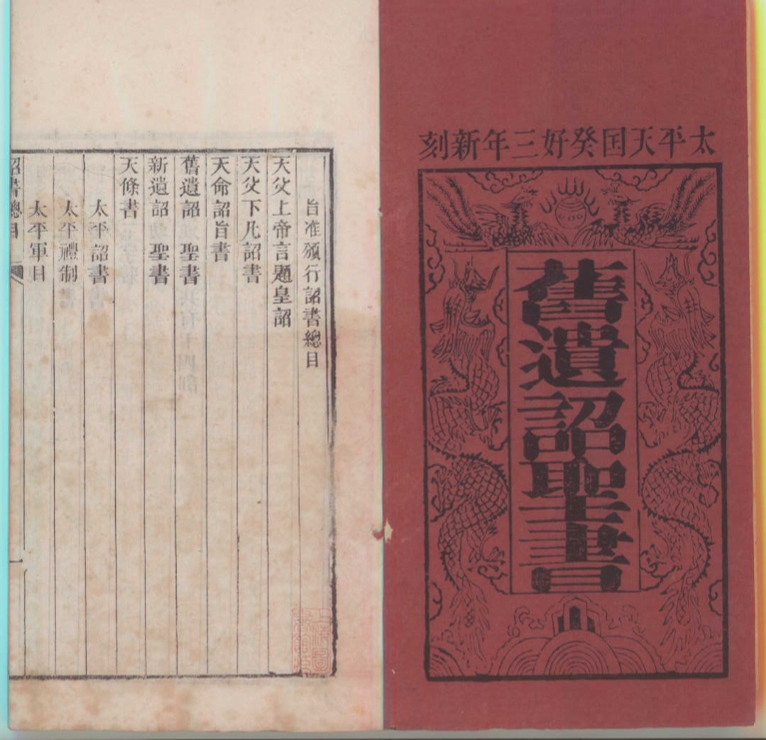 太平天囯癸好三年新刻
舊遺詔聖書
旨准頒行詔書總目
天父上帝言題皇詔
天父下凡詔書
天命詔旨書
舊遺詔聖書
新遺詔聖書
天條書
太平詔書
太平禮制
太平軍目
詔書總目
一